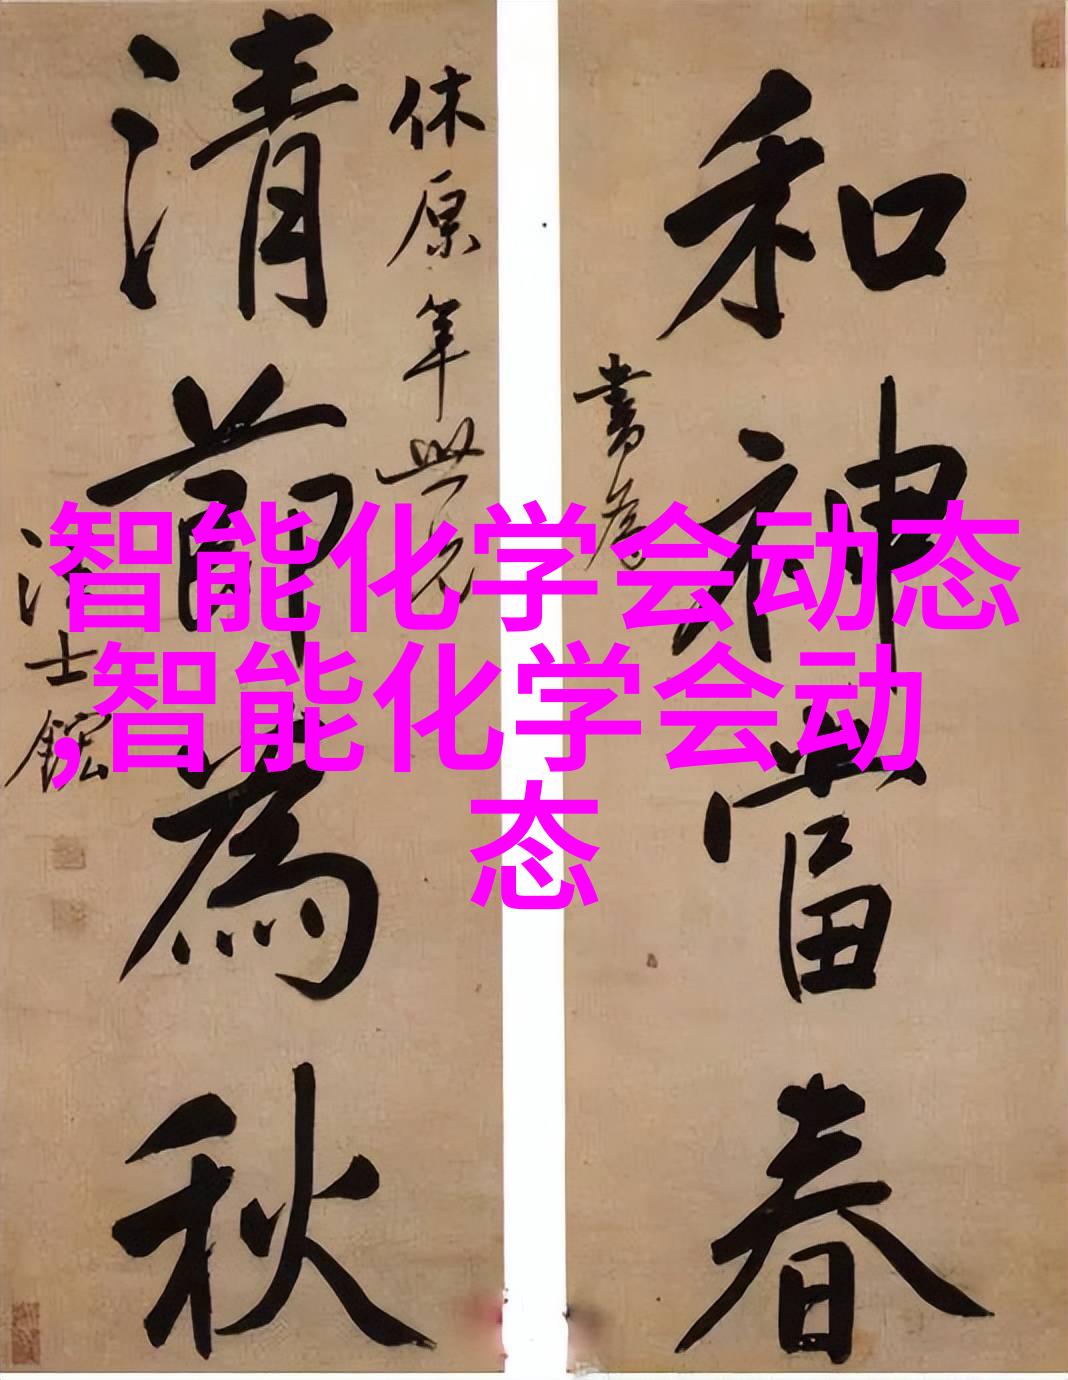 和神當春
書為
清節為秋
休原年世兄
汪士鋐
智能化学会动态
,智能化学会动
态